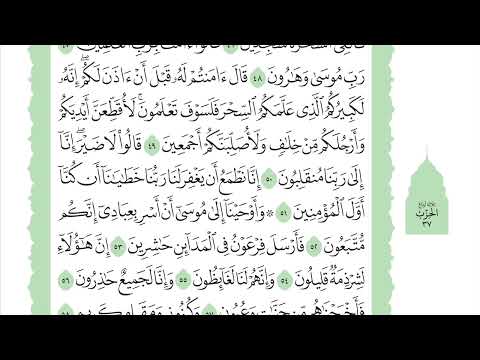 فَأُلْقِيَ ٱلسَّحَرَةُ سَٰجِدِينَ ٤٦ قَالُوٓا۟ ءَامَنَّا بِرَبِّ ٱلْعَٰلَمِينَ ٤٧
رَبِّ مُوسَىٰ وَهَٰرُونَ ٤٨ قَالَ ءَامَنتُمْ لَهُۥ قَبْلَ أَنْ ءَاذَنَ لَكُمْ ۖ إِنَّهُۥ
لَكَبِيرُكُمُ ٱلَّذِى عَلَّمَكُمُ ٱلسِّحْرَ فَلَسَوْفَ تَعْلَمُونَ ۚ لَأُقَطِّعَنَّ أَيْدِيَكُمْ
وَأَرْجُلَكُم مِّنْ خِلَٰفٍ وَلَأُصَلِّبَنَّكُمْ أَجْمَعِينَ ٤٩ قَالُوا۟ لَا ضَيْرَ ۖ إِنَّآ
إِلَىٰ رَبِّنَا مُنقَلِبُونَ ٥٠ إِنَّا نَطْمَعُ أَن يَغْفِرَ لَنَا رَبُّنَا خَطَٰيَٰنَآ أَن كُنَّآ
أَوَّلَ ٱلْمُؤْمِنِينَ ٥١ ۞ وَأَوْحَيْنَآ إِلَىٰ مُوسَىٰٓ أَنْ أَسْرِ بِعِبَادِىٓ إِنَّكُم
مُّتَّبَعُونَ ٥٢ فَأَرْسَلَ فِرْعَوْنُ فِى ٱلْمَدَآئِنِ حَٰشِرِينَ ٥٣ إِنَّ هَٰٓؤُلَآءِ
لَشِرْذِمَةٌ قَلِيلُونَ ٥٤ وَإِنَّهُمْ لَنَا لَغَآئِظُونَ ٥٥ وَإِنَّا لَجَمِيعٌ حَٰذِرُونَ ٥٦
فَأَخْرَجْنَٰهُم مِّن جَنَّٰتٍ وَعُيُونٍ ٥٧ وَكُنُوزٍ وَمَقَامٍ كَرِيمٍ ٥٨
ثلاثة أرباع
الحزب
٣٧